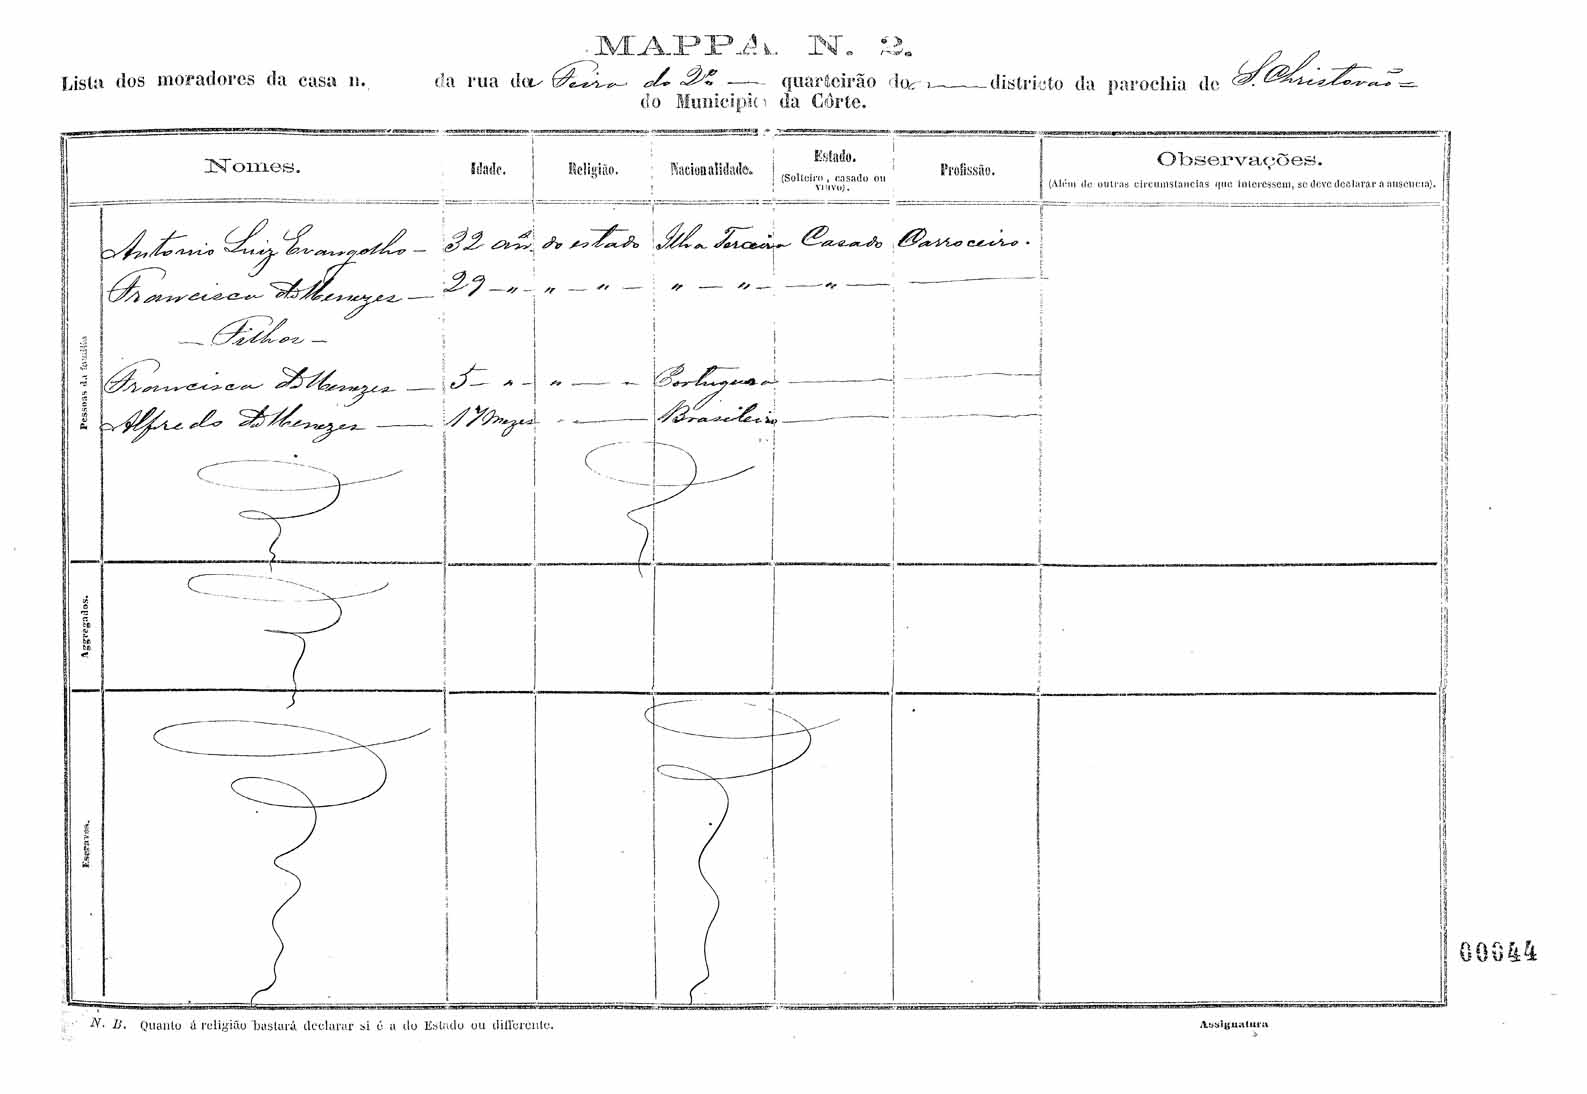 MAPPA N. 2.
Lista dos moradores da casa n. da rua da Feira do 2º — quarteirão do — districto da parochia de S. Christovão =
do Municipio da Côrte.
Nomes. Idade. Religião. Nacionalidade. Estado. (Solteiro, casado ou viuvo). Profissão. Observações. (Além de outras circumstancias que interessem, se deve declarar a ausencia).
Pessoas da familia
Antonio Luiz Evangelho — 32 ans. do estado Ilha Terceira Casado Carroceiro.
Francisca de Menezes — 29 — " — " — " — " — " — — " — —
— Filhos —
Francisca de Menezes — 5 — " — " — " Portugueza — —
Alfredo de Menezes — 17 Mezes " — Brasileiro — —
Aggregados.
Escravos.
00044
N. B. Quanto á religião bastará declarar si é a do Estado ou differente.
Assignatura